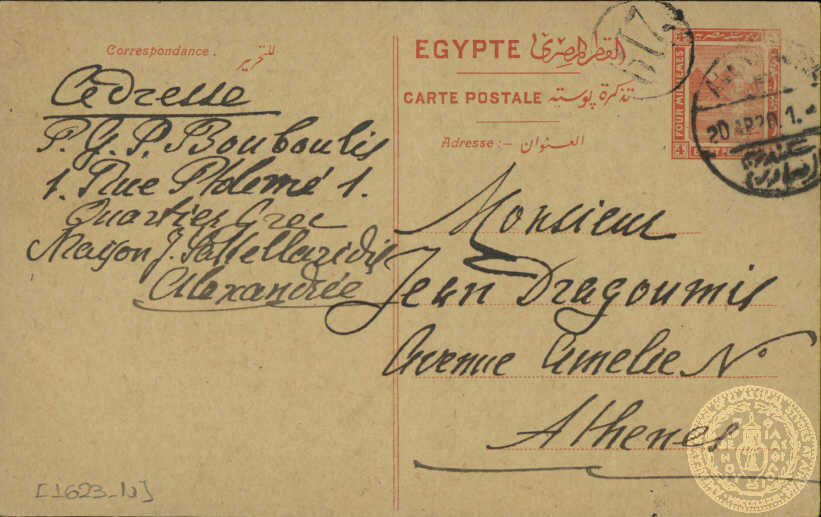 Correspondance :
EGYPTE القطر المصرى
CARTE POSTALE تذكرة بوسته
Adresse :- العنوان
4 4
FOUR MILLIEMES
20 AP 20 1.
Adresse
P. G. P. Bouboulis
1. Rue Ptolemé 1.
Quartier Grec
Maison J.
Alexandrée
Monsieur
Jean Dragoumis
Avenue Amelie No
Athenes
[1623_1a]